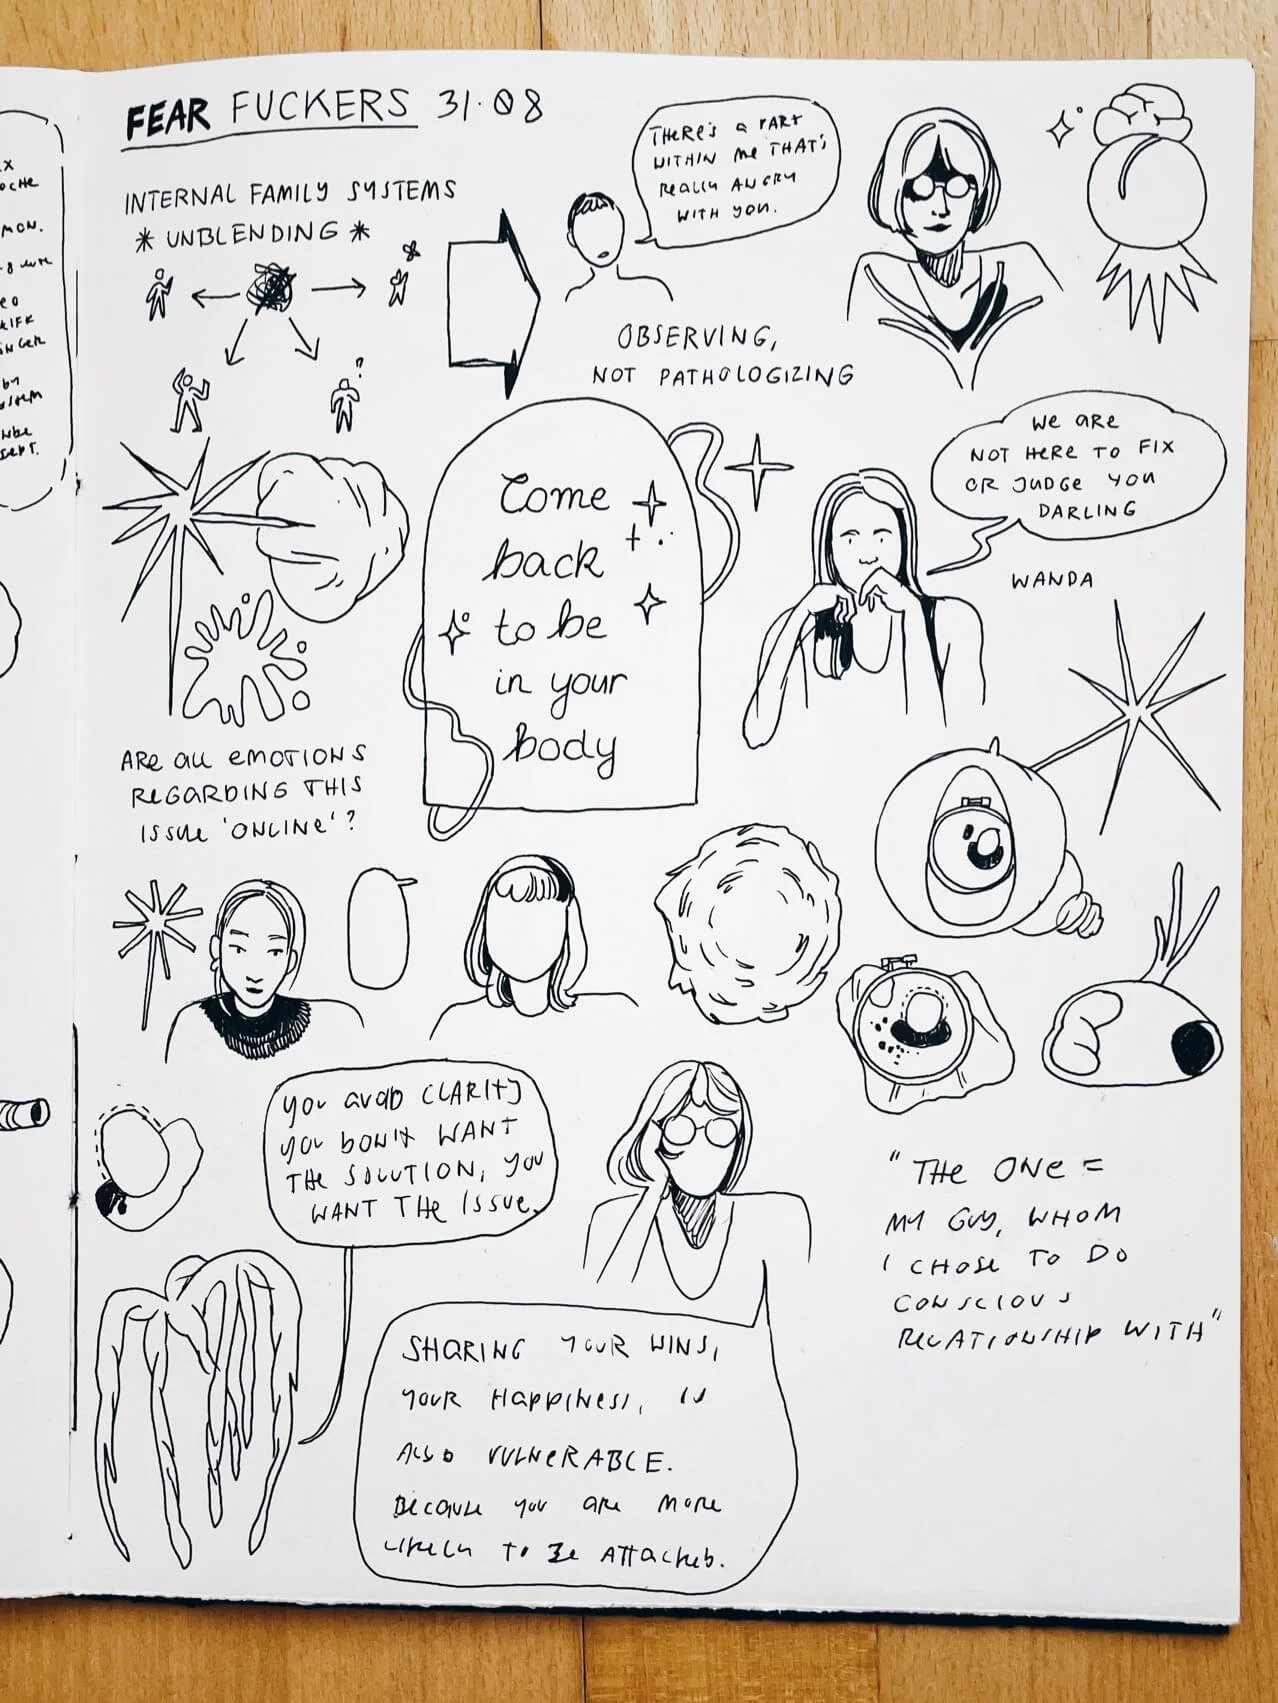 FEAR FUCKERS 31.08
INTERNAL FAMILY SYSTEMS
* UNBLENDING *
?
THERE'S A PART
WITHIN ME THAT'S
REALLY ANGRY
WITH YOU.
OBSERVING,
NOT PATHOLOGIZING
Come
back
to be
in your
body
WE ARE
NOT HERE TO FIX
OR JUDGE YOU
DARLING
WANDA
ARE ALL EMOTIONS
REGARDING THIS
ISSUE 'ONLINE'?
YOU AVOID CLARITY
YOU DON'T WANT
THE SOLUTION, YOU
WANT THE ISSUE.
"THE ONE =
MY GUY, WHOM
I CHOSE TO DO
CONSCIOUS
RELATIONSHIP WITH"
SHARING YOUR WINS,
YOUR HAPPINESS, IS
ALSO VULNERABLE.
BECAUSE YOU ARE MORE
LIKELY TO BE ATTACKED.